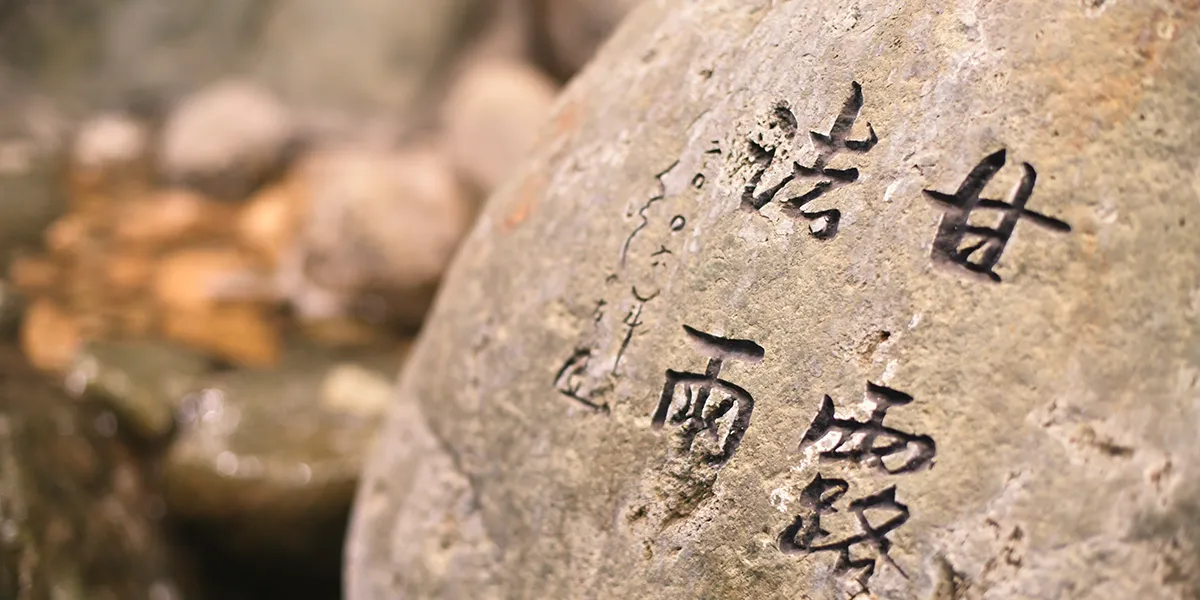 甘露
法雨